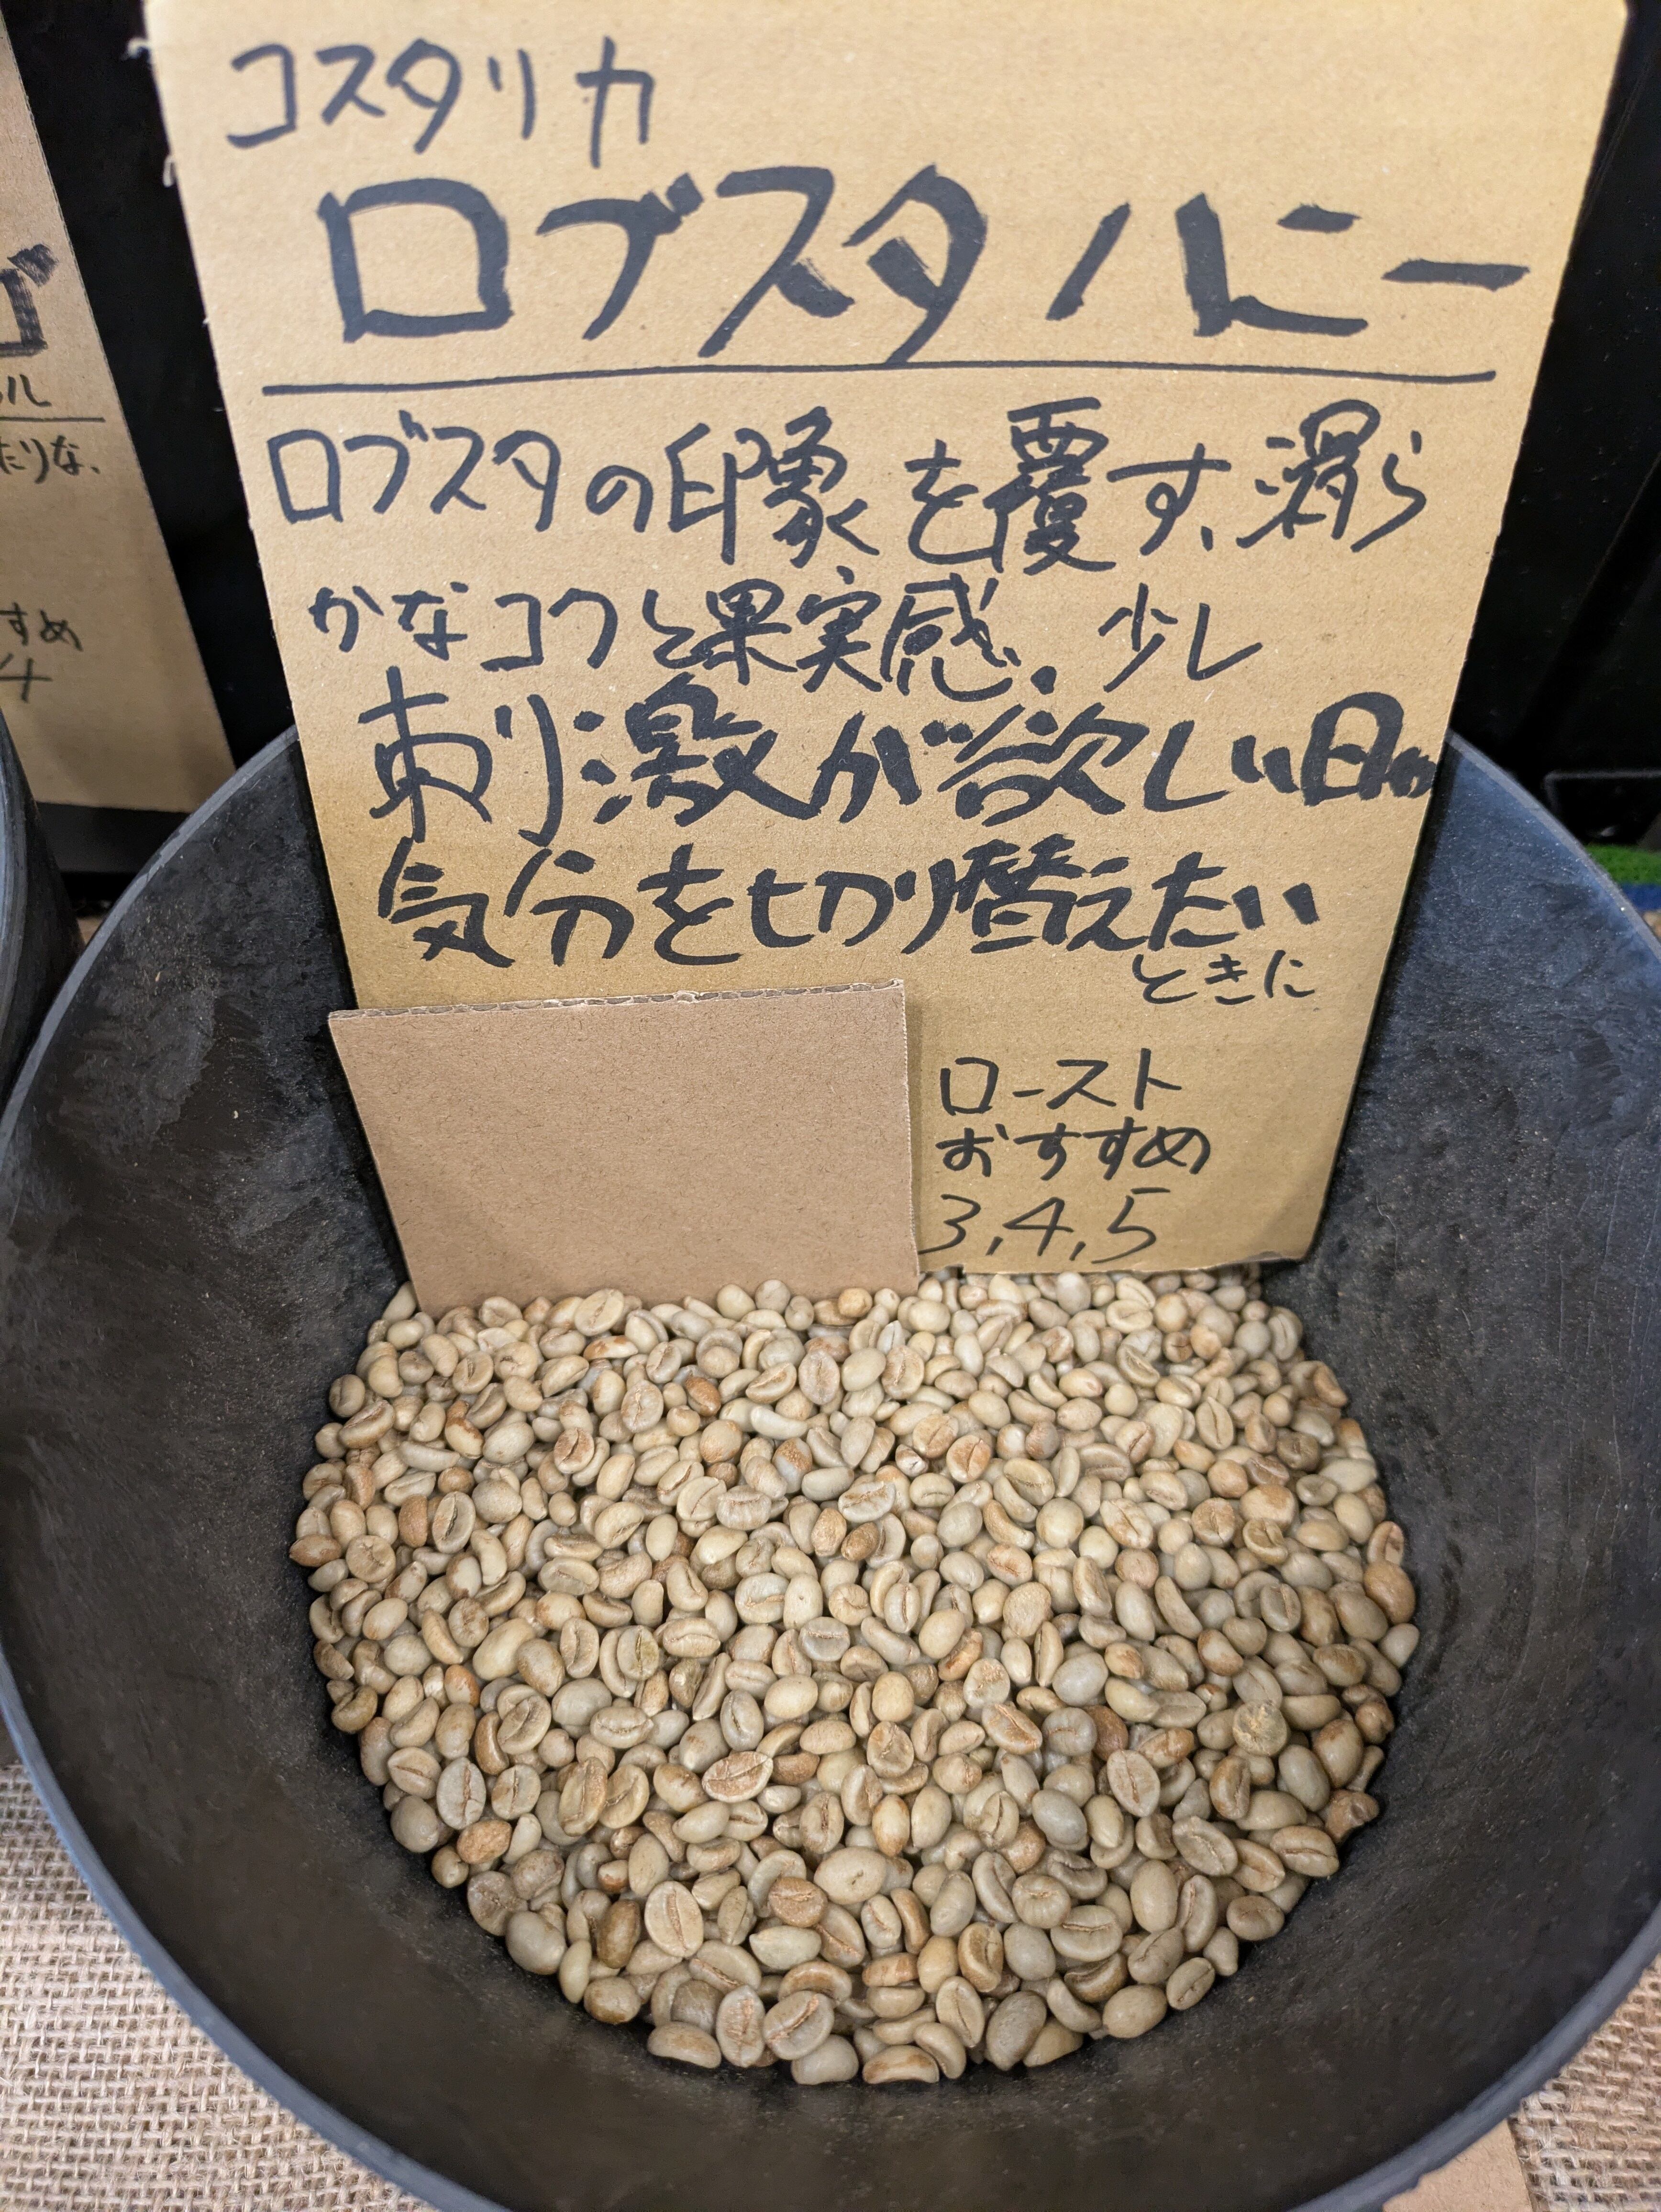 コスタリカ
ロブスタハニー
ロブスタの印象を覆す、滑ら
かなコクと果実感。少し
刺激が欲しい日の
気分を切り替えたい
ときに
ロースト
おすすめ
3,4,5
ル
たりな、
すめ
4